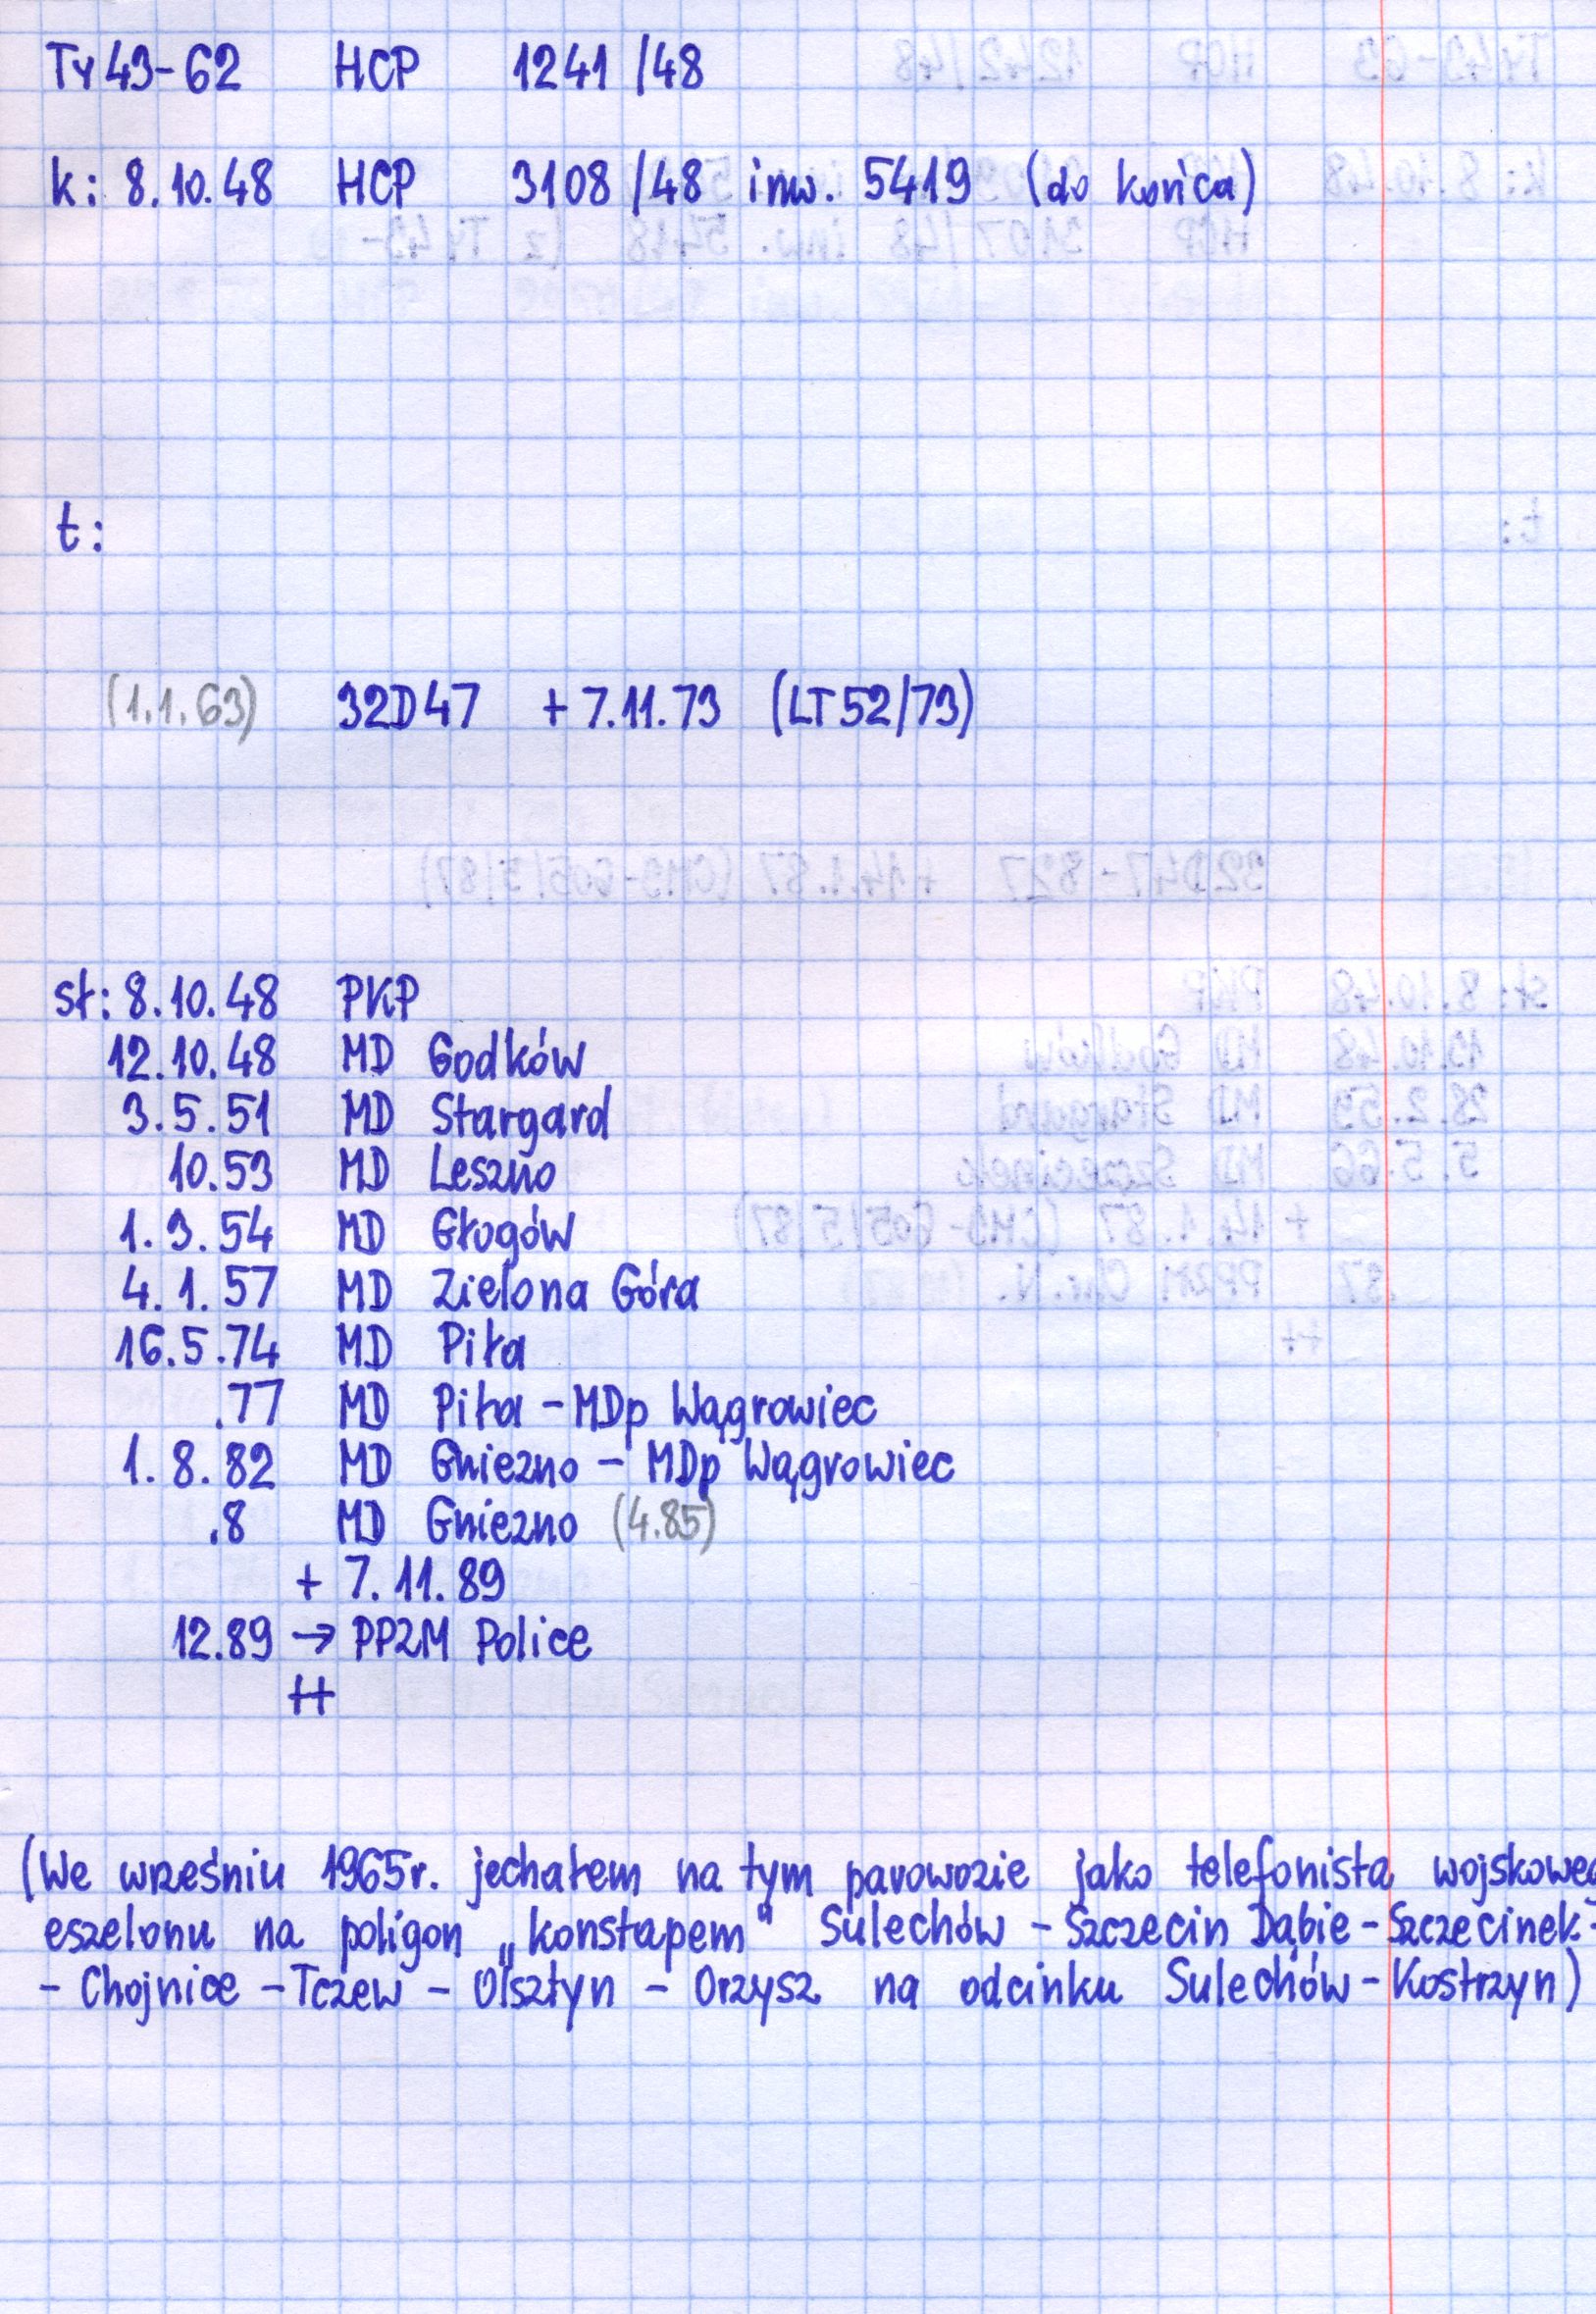 Ty43-62 HCP 1241/48
k: 8.10.48 HCP 3108/48 inw. 5419 (do końca)
t:
(1.1.63) 32D47 +7.11.73 (LT52/73)
st: 8.10.48 PKP
12.10.48 MD Godków
3.5.51 MD Stargard
10.53 MD Leszno
1.3.54 MD Głogów
4.1.57 MD Zielona Góra
16.5.74 MD Piła
.77 MD Piła - MDp Wągrowiec
1.8.82 MD Gniezno - MDp Wągrowiec
.8 MD Gniezno (4.85)
+ 7.11.89
12.89 → PPZM Police
++
(We wrześniu 1965r. jechałem na tym parowozie jako telefonista wojskoweg
eszelonu na poligon „konstapem" Sulechów - Szczecin Dąbie - Szczecinek -
- Chojnice - Tczew - Olsztyn - Orzysz na odcinku Sulechów - Kostrzyn)